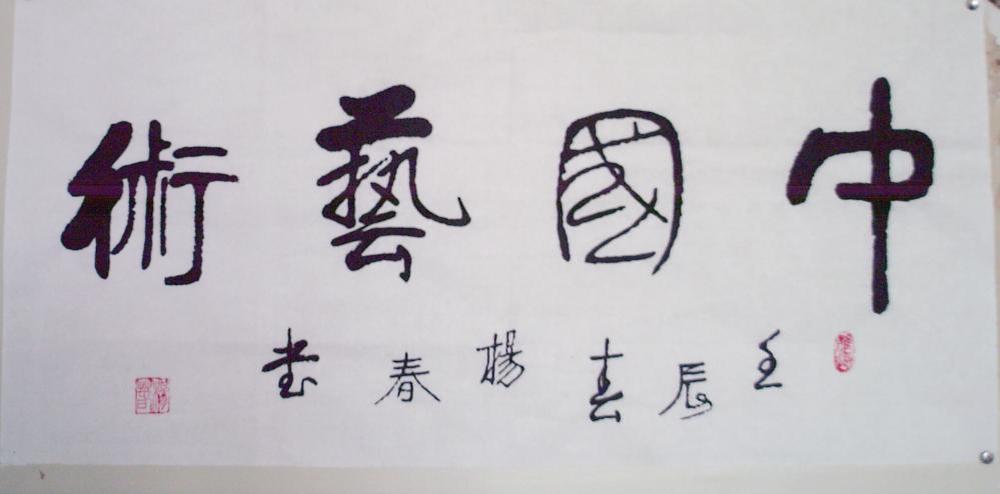 中國藝術
壬辰春楊春書